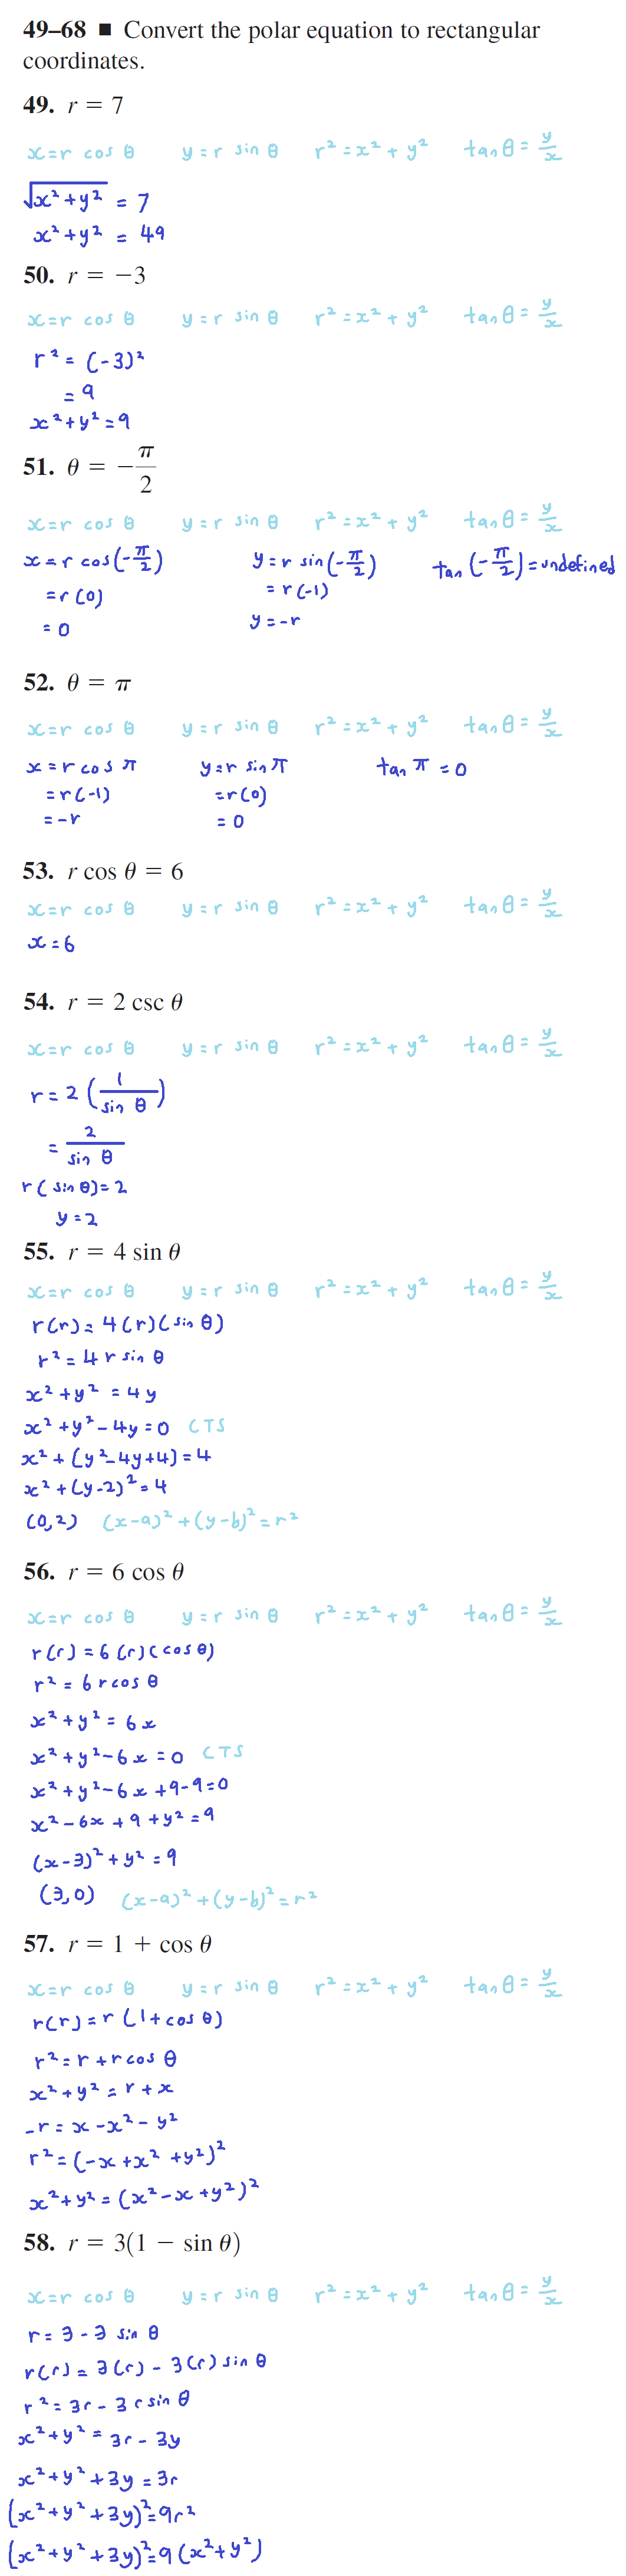 49–68 ■ Convert the polar equation to rectangular
coordinates.
49. r = 7
x = r cos θ y = r sin θ r² = x² + y² tan θ = y/x
√(x² + y²) = 7
x² + y² = 49
50. r = −3
x = r cos θ y = r sin θ r² = x² + y² tan θ = y/x
r² = (-3)²
= 9
x² + y² = 9
51. θ = −π/2
x = r cos θ y = r sin θ r² = x² + y² tan θ = y/x
x = r cos(-π/2) y = r sin(-π/2) tan(-π/2) = undefined
= r(0) = r(-1)
= 0 y = -r
52. θ = π
x = r cos θ y = r sin θ r² = x² + y² tan θ = y/x
x = r cos π y = r sin π tan π = 0
= r(-1) = r(0)
= -r = 0
53. r cos θ = 6
x = r cos θ y = r sin θ r² = x² + y² tan θ = y/x
x = 6
54. r = 2 csc θ
x = r cos θ y = r sin θ r² = x² + y² tan θ = y/x
r = 2 (1/sin θ)
= 2/sin θ
r(sin θ) = 2
y = 2
55. r = 4 sin θ
x = r cos θ y = r sin θ r² = x² + y² tan θ = y/x
r(r) = 4(r)(sin θ)
r² = 4 r sin θ
x² + y² = 4y
x² + y² - 4y = 0 CTS
x² + (y² - 4y + 4) = 4
x² + (y-2)² = 4
(0,2) (x-a)² + (y-b)² = r²
56. r = 6 cos θ
x = r cos θ y = r sin θ r² = x² + y² tan θ = y/x
r(r) = 6(r)(cos θ)
r² = 6 r cos θ
x² + y² = 6x
x² + y² - 6x = 0 CTS
x² + y² - 6x + 9 - 9 = 0
x² - 6x + 9 + y² = 9
(x-3)² + y² = 9
(3,0) (x-a)² + (y-b)² = r²
57. r = 1 + cos θ
x = r cos θ y = r sin θ r² = x² + y² tan θ = y/x
r(r) = r(1 + cos θ)
r² = r + r cos θ
x² + y² = r + x
-r = x - x² - y²
r² = (-x + x² + y²)²
x² + y² = (x² - x + y²)²
58. r = 3(1 − sin θ)
x = r cos θ y = r sin θ r² = x² + y² tan θ = y/x
r = 3 - 3 sin θ
r(r) = 3(r) - 3(r) sin θ
r² = 3r - 3 r sin θ
x² + y² = 3r - 3y
x² + y² + 3y = 3r
(x² + y² + 3y)² = 9r²
(x² + y² + 3y)² = 9(x² + y²)